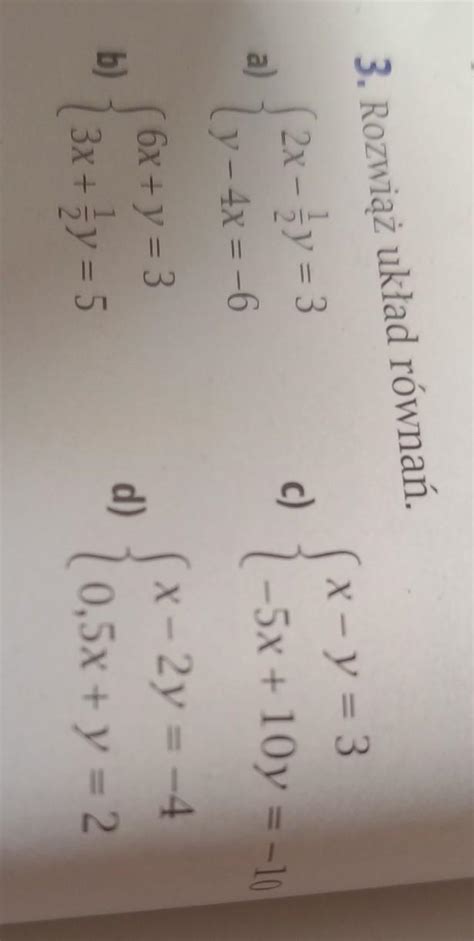 3. Rozwiąż układ równań.
a) { 2x − 1/2y = 3
y − 4x = −6
b) { 6x + y = 3
3x + 1/2y = 5
c) { x − y = 3
−5x + 10y = −10
d) { x − 2y = −4
0,5x + y = 2